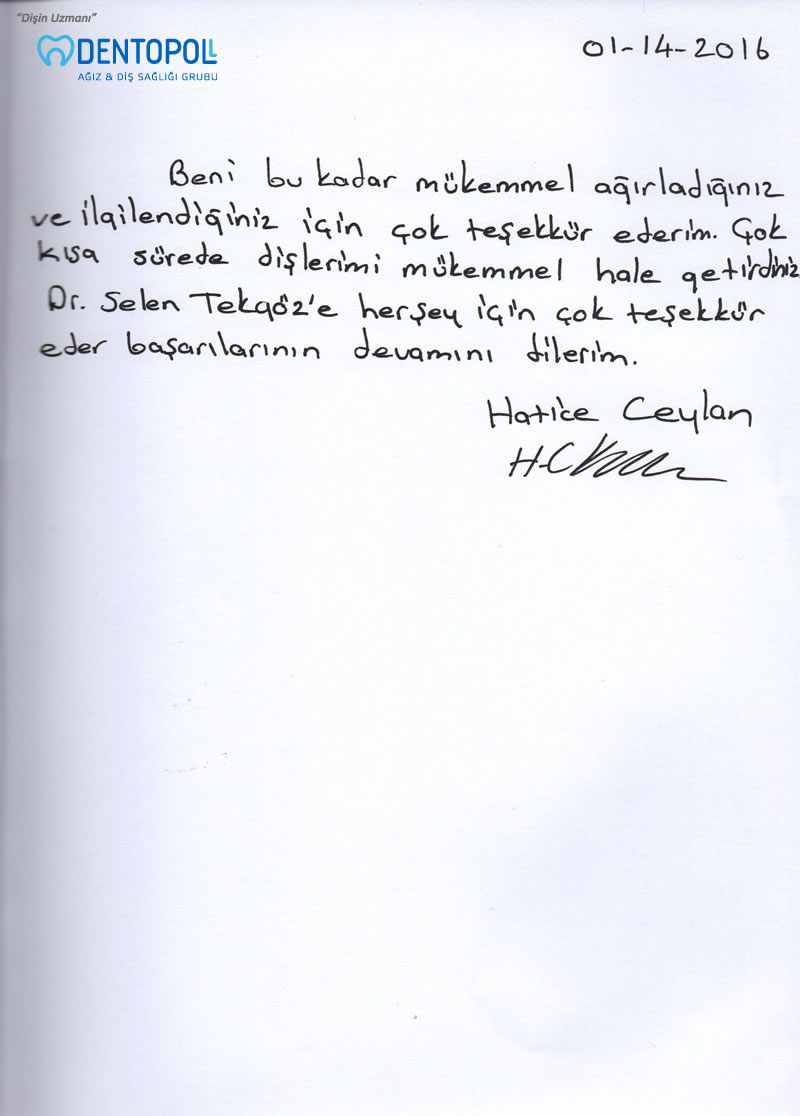 "Dişin Uzmanı"
DENTOPOLL
AĞIZ & DİŞ SAĞLIĞI GRUBU
01-14-2016
Beni bu kadar mükemmel ağırladığınız
ve ilgilendiğiniz için çok teşekkür ederim. Çok
kısa sürede dişlerimi mükemmel hale getirdiniz
Dr. Selen Tekgöz'e herşey için çok teşekkür
eder başarılarının devamını dilerim.
Hatice Ceylan